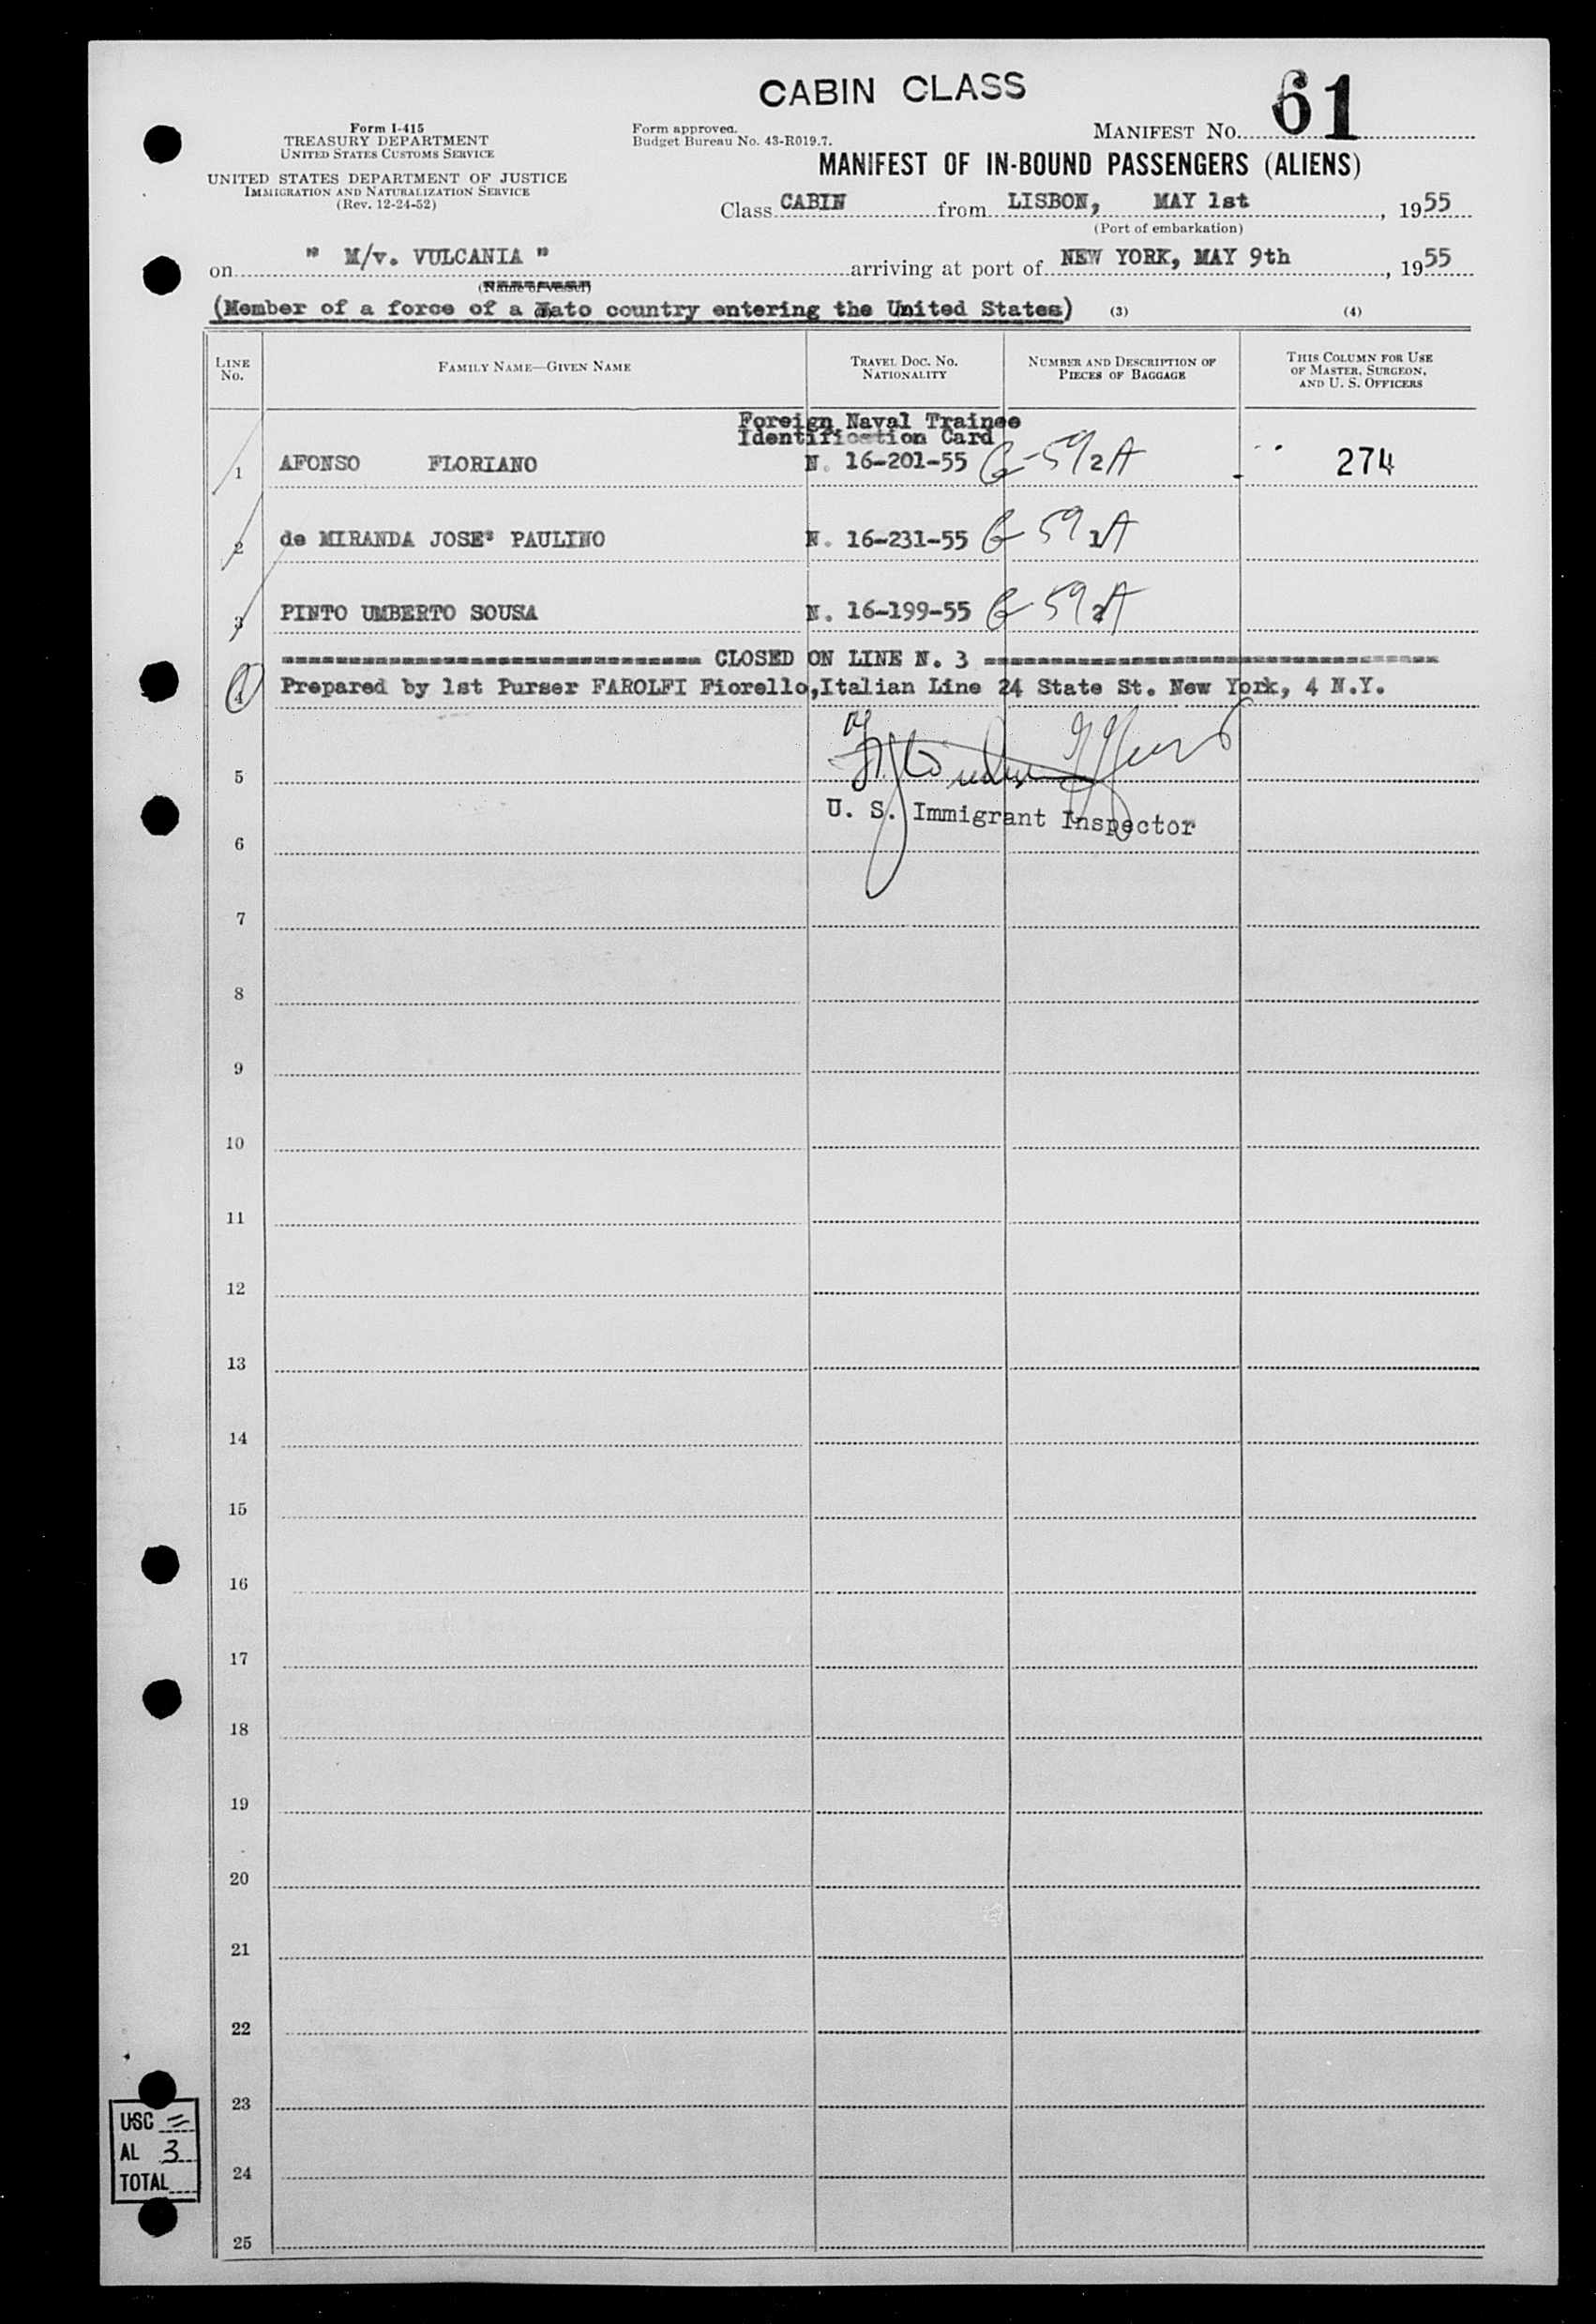 CABIN CLASS
Form I-415
TREASURY DEPARTMENT
UNITED STATES CUSTOMS SERVICE
UNITED STATES DEPARTMENT OF JUSTICE
IMMIGRATION AND NATURALIZATION SERVICE
(Rev. 12-24-52)
Form approved.
Budget Bureau No. 43-R019.7.
MANIFEST NO. 61
MANIFEST OF IN-BOUND PASSENGERS (ALIENS)
Class CABIN from LISBON, MAY 1st, 1955
(Port of embarkation)
on " M/v. VULCANIA " arriving at port of NEW YORK, MAY 9th, 1955
(Name of vessel)
(Member of a force of a Nato country entering the United States) (3) (4)
LINE NO. FAMILY NAME—GIVEN NAME TRAVEL DOC. NO. NATIONALITY NUMBER AND DESCRIPTION OF PIECES OF BAGGAGE THIS COLUMN FOR USE OF MASTER, SURGEON, AND U. S. OFFICERS
Foreign Naval Trainee
Identification Card
1 AFONSO FLORIANO N. 16-201-55 G-59 2A 274
2 de MIRANDA JOSE' PAULINO N. 16-231-55 G 59 1A
3 PINTO UMBERTO SOUSA N. 16-199-55 G-59 2A
CLOSED ON LINE N. 3
4 Prepared by 1st Purser FAROLFI Fiorello,Italian Line 24 State St. New York, 4 N.Y.
5
U. S. Immigrant Inspector
6
7
8
9
10
11
12
13
14
15
16
17
18
19
20
21
22
23
24
25
USC =
AL 3
TOTAL